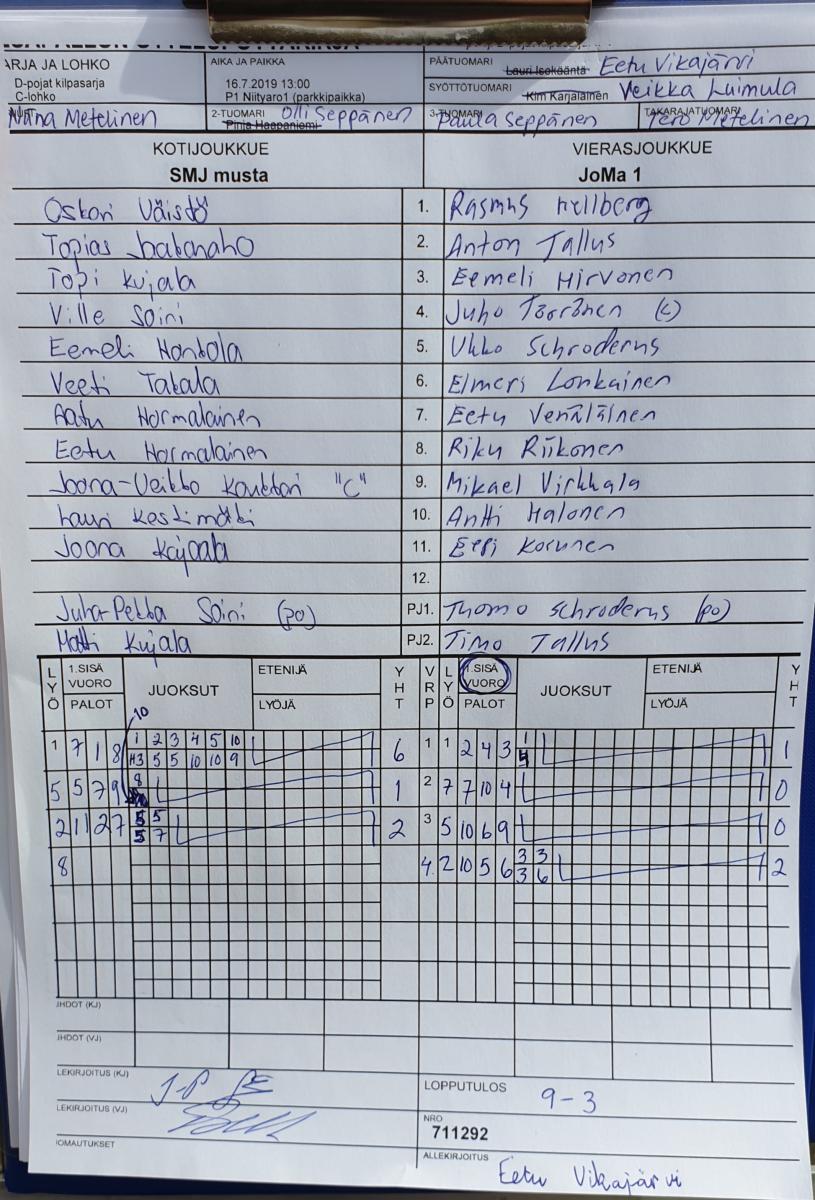 ARJA JA LOHKO AIKA JA PAIKKA PÄÄTUOMARI Lauri Isokääntä Eetu Vikajärvi
D-pojat kilpasarja 16.7.2019 13:00 SYÖTTÖTUOMARI Kim Karjalainen Veikka Luimula
C-lohko P1 Niityaro1 (parkkipaikka)
Niina Metelinen 2-TUOMARI Pinja Haapaniemi Olli Seppänen 3-TUOMARI Paula Seppänen TAKARAJATUOMARI Tero Metelinen
KOTIJOUKKUE VIERASJOUKKUE
SMJ musta JoMa 1
Oskari Väistö 1. Rasmus Hellberg
Topias 2. Anton Tallus
Topi Kujala 3. Eemeli Hirvonen
Ville Soini 4. Juho Törrönen (c)
Eemeli Hantola 5. Ukko Schroderus
Veeti Takala 6. Elmeri Lonkainen
Aatu Hormalainen 7. Eetu Venäläinen
Eetu Hormalainen 8. Riku Riikonen
Joona-Veikko "C" 9. Mikael Virkkala
Lauri Keskimäki 10. Antti Halonen
Joona Kujala 11. Eeri Korunen
12.
Juha-Pekka Soini (po) PJ1. Thomo Schroderus (po)
Matti Kujala PJ2. Timo Tallus
LYÖ 1.SISÄ VUORO PALOT JUOKSUT ETENIJÄ LYÖJÄ YHT VRP LYÖ 1.SISÄ VUORO PALOT JUOKSUT ETENIJÄ LYÖJÄ YHT
10
1 7 1 8 1 2 3 4 5 10 6 1 1 2 4 3 1 1
H3 5 5 10 10 9 4
5 5 7 9 8 1 2 7 7 10 4 0
2 11 2 7 5 5 2 3 5 10 6 9 0
5 7
8 4. 2 10 5 6 3 3 2
3 6
JHDOT (KJ)
JHDOT (VJ)
LEKIRJOITUS (KJ) J-P LOPPUTULOS 9-3
LEKIRJOITUS (VJ) NRO
711292
IOMAUTUKSET ALLEKIRJOITUS Eetu Vikajärvi